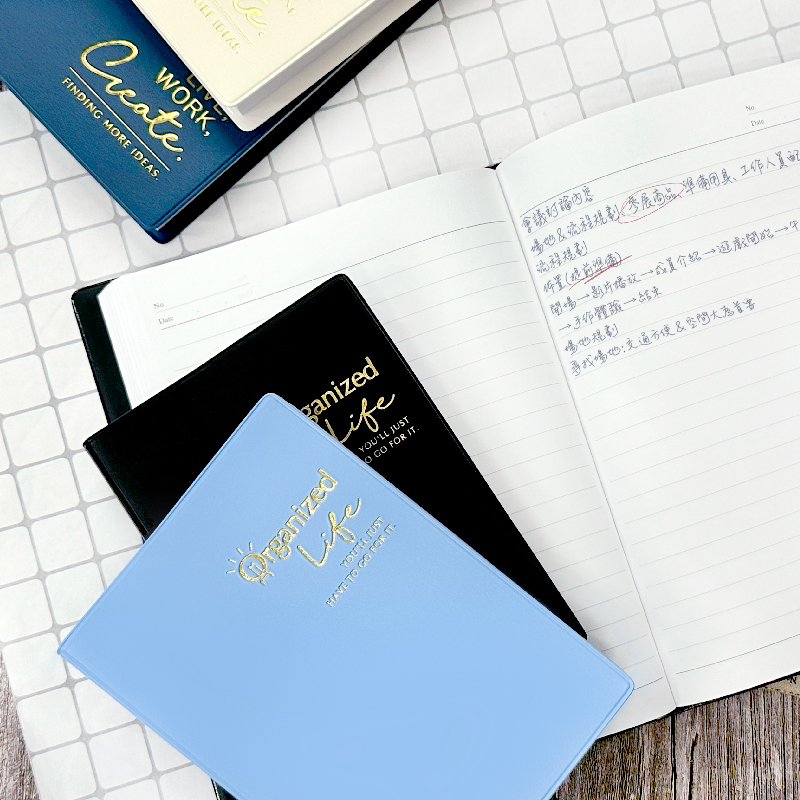 LIVE,
WORK,
Create.
FINDING MORE IDEAS.
Create.
IDEAS.
No.
Date
會議討論內容
場地&流程規劃,參展商品,準備用具、工作人員
流程規劃
佈置(提前準備)
開場→影片播放→成員介紹→遊戲開始→午
→手作體驗→結束
場地規劃
尋找場地:交通方便&空間大為首要
No.
Date
ganized
Life
YOU'LL JUST
O GO FOR IT.
Organized
Life
YOU'LL JUST
HAVE TO GO FOR IT.